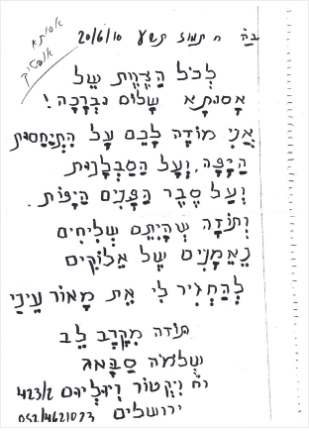 בה ח תמוז תשע 20/6/10
אסותא
אופטיק
לְכֹל הַצֶּוֶת שֶׁל
אָסוּתָא שָׁלוֹם וּבְרָכָה!
אֲנִי מוֹדֶה לָכֶם עָל הִתְיַחֲסוּת
הַיָּפָה, וְעָל הַסַבְלָנוּת
וְעַל סֵבֶר הַפָּנִים הַיָּפוֹת.
וְתּוֹדָה שֶׁהָיִתֶם שְׁלִיחִים
נֶאֱמָנִים שֶׁל אֱלוֹקִים
לְהַחְזִיר לִי אֶת מְאוֹר עֵינַי
תּוֹדה מִקֶרֶב לֵב
שְׁלֹמֹה סַבָּאג
רח וִיקְטוֹר וְיוּלְיוּס 423/2
ירושלים 052/4621073